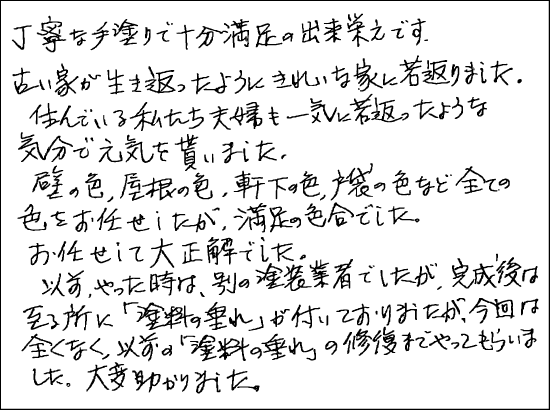 丁寧な手塗りで十分満足の出来栄えです.
古い家が生き返ったようにきれいな家に若返りました.
住んでいる私たち夫婦も一気に若返ったような
気分で元気を貰いました.
壁の色,屋根の色,軒下の色,戸袋の色など全ての
色をお任せしたが,満足の色合でした。
お任せして大正解でした。
以前,やった時は、別の塗装業者でしたが,完成後は
至る所に「塗料の垂れ」が付いておりましたが、今回は
全くなく,以前の「塗料の垂れ」の修復までやってもらいま
した。大変助かりました。